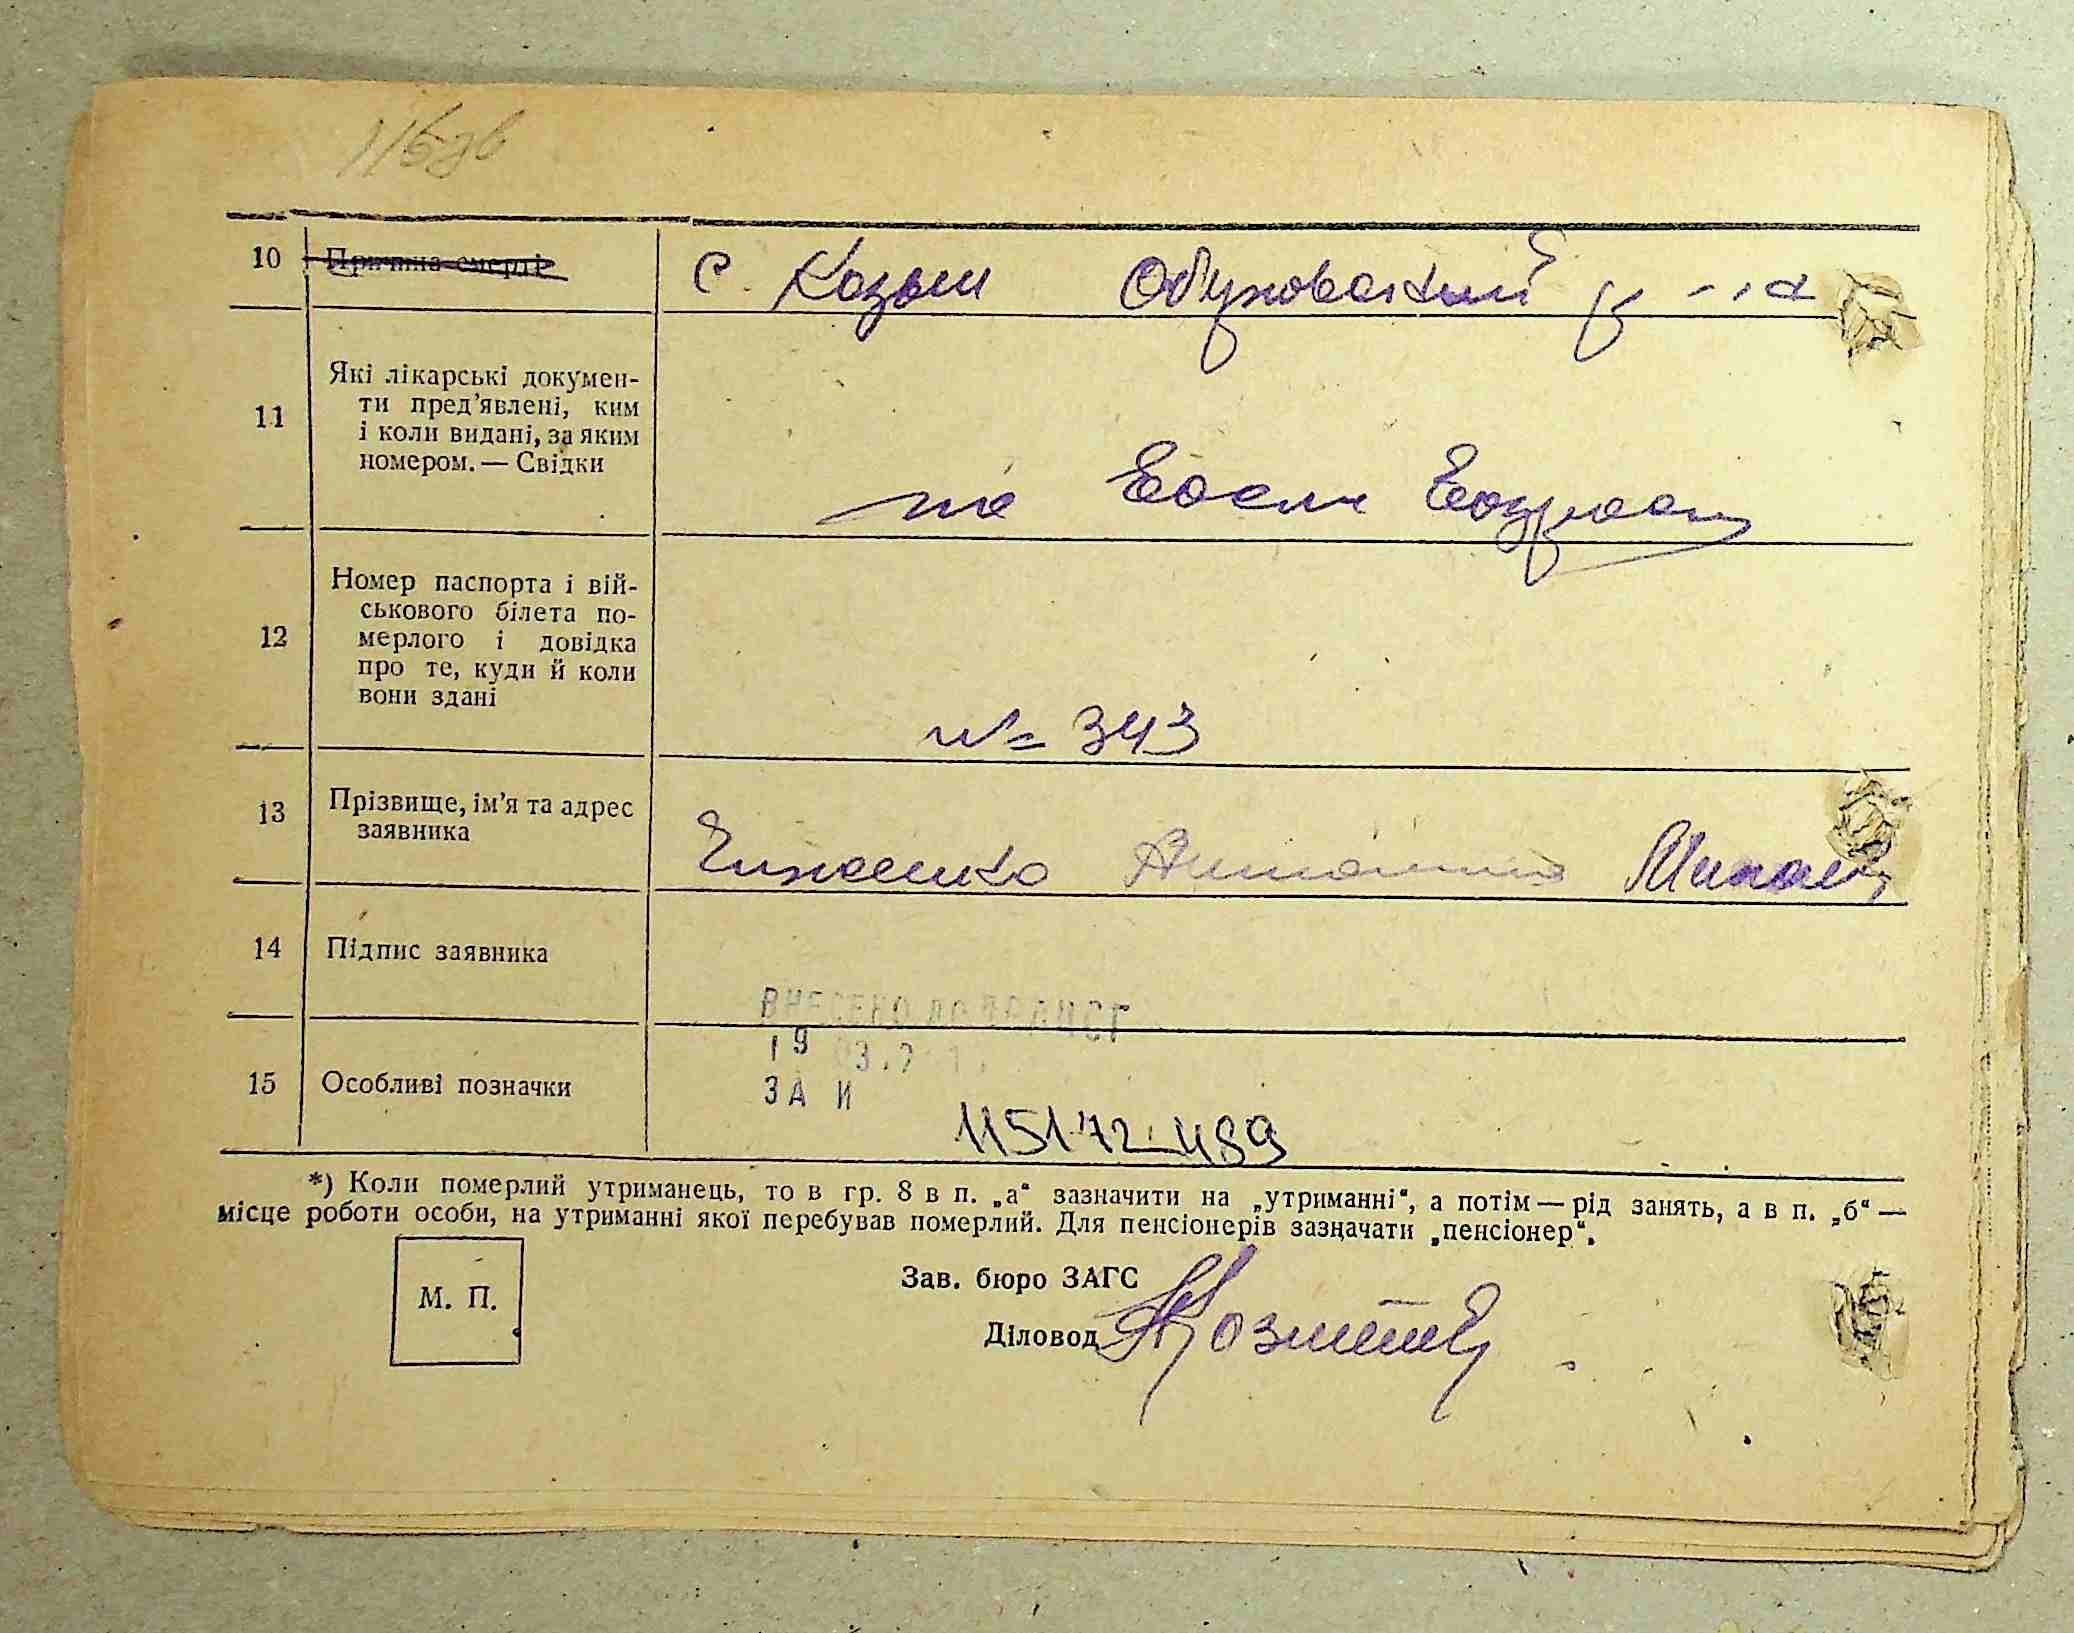 116зв
10 Причина смерті с. Козын Обуховский р-на
11 Які лікарські докумен-
ти пред'явлені, ким
і коли видані, за яким
номером. — Свідки
на
12 Номер паспорта і вій-
ськового білета по-
мерлого і довідка
про те, куди й коли
вони здані
№ 343
13 Прізвище, ім'я та адрес
заявника
14 Підпис заявника
ВНЕСЕНО ДО
19
15 Особливі позначки
ЗА И
115172489
*) Коли померлий утриманець, то в гр. 8 в п. „а“ зазначити на „утриманні“, а потім — рід занять, а в п. „б“ —
місце роботи особи, на утриманні якої перебував померлий. Для пенсіонерів зазначати „пенсіонер“.
М. П.
Зав. бюро ЗАГС
Діловод